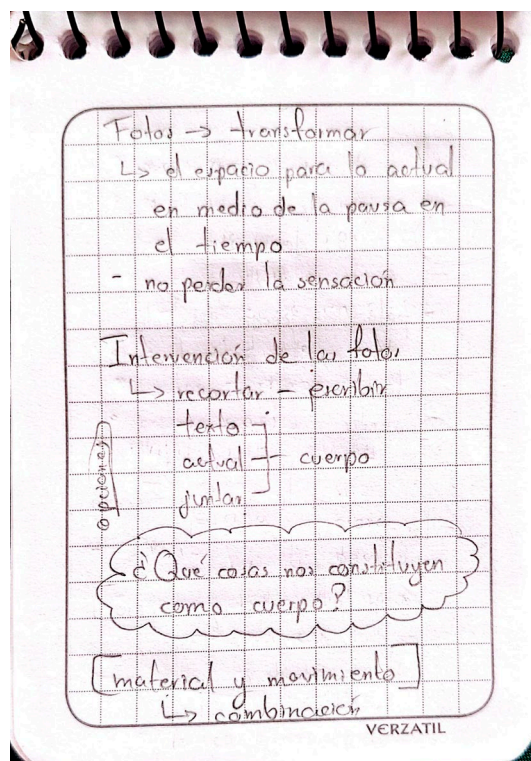 Fotos -> transformar
↳ el espacio para lo actual
en medio de la pausa en
el tiempo
- no perder la sensación
Intervención de las fotos
↳ recortar - escribir
texto
actual - cuerpo
juntar
opciones
¿Qué cosas nos constituyen
como cuerpo?
[material y movimiento]
↳ combinación
VERZATIL